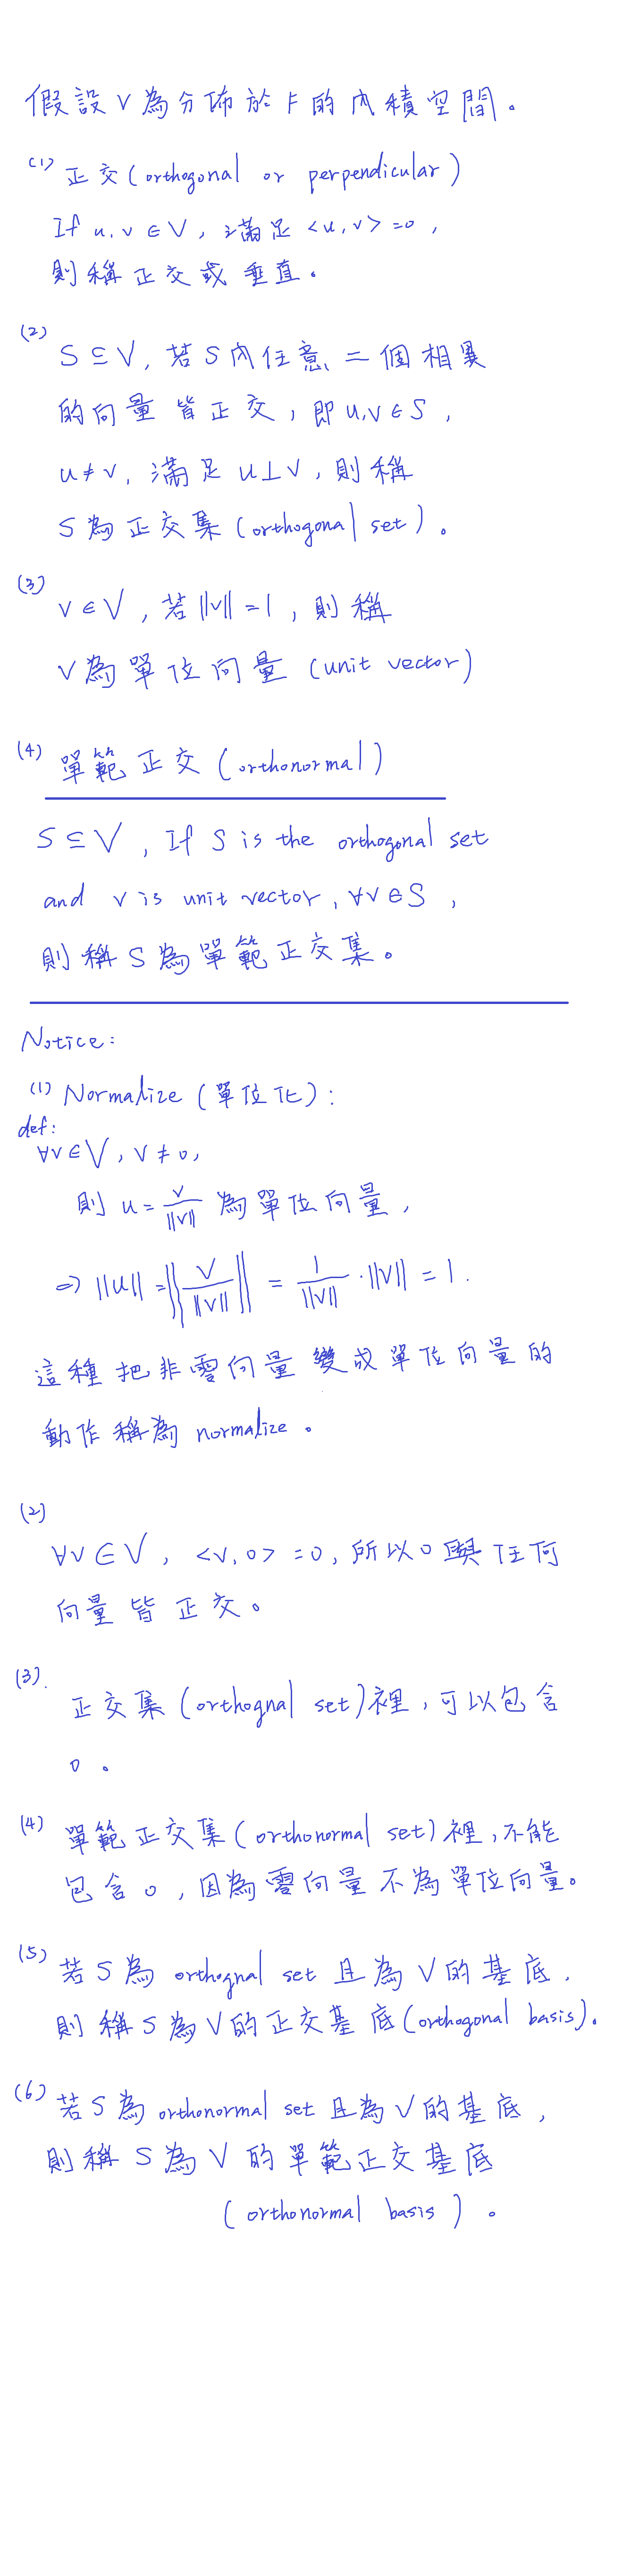 假設V為分佈於F的內積空間。
(1) 正交(orthogonal or perpendicular)
If u,v∈V, 滿足<u,v>=0,
則稱正交或垂直。
(2)
S⊆V, 若S內任意二個相異
的向量皆正交, 即u,v∈S,
u≠v, 滿足u⊥v, 則稱
S為正交集(orthogonal set)。
(3)
v∈V, 若||v||=1, 則稱
v為單位向量(unit vector)
(4) 單範正交(orthonormal)
S⊆V, If S is the orthogonal set
and v is unit vector, ∀v∈S,
則稱S為單範正交集。
Notice:
(1) Normalize(單位化):
def:
∀v∈V, v≠0,
則 u=v/||v|| 為單位向量,
⇒ ||u||=||v/||v|| || = 1/||v||·||v|| = 1.
這種把非零向量變成單位向量的
動作稱為normalize。
(2)
∀v∈V, <v,0>=0, 所以0與任何
向量皆正交。
(3).
正交集(orthognal set)裡,可以包含
0。
(4) 單範正交集(orthonormal set)裡,不能
包含0,因為零向量不為單位向量。
(5) 若S為orthognal set且為V的基底,
則稱S為V的正交基底(orthogonal basis)。
(6) 若S為orthonormal set且為V的基底,
則稱S為V的單範正交基底
(orthonormal basis)。